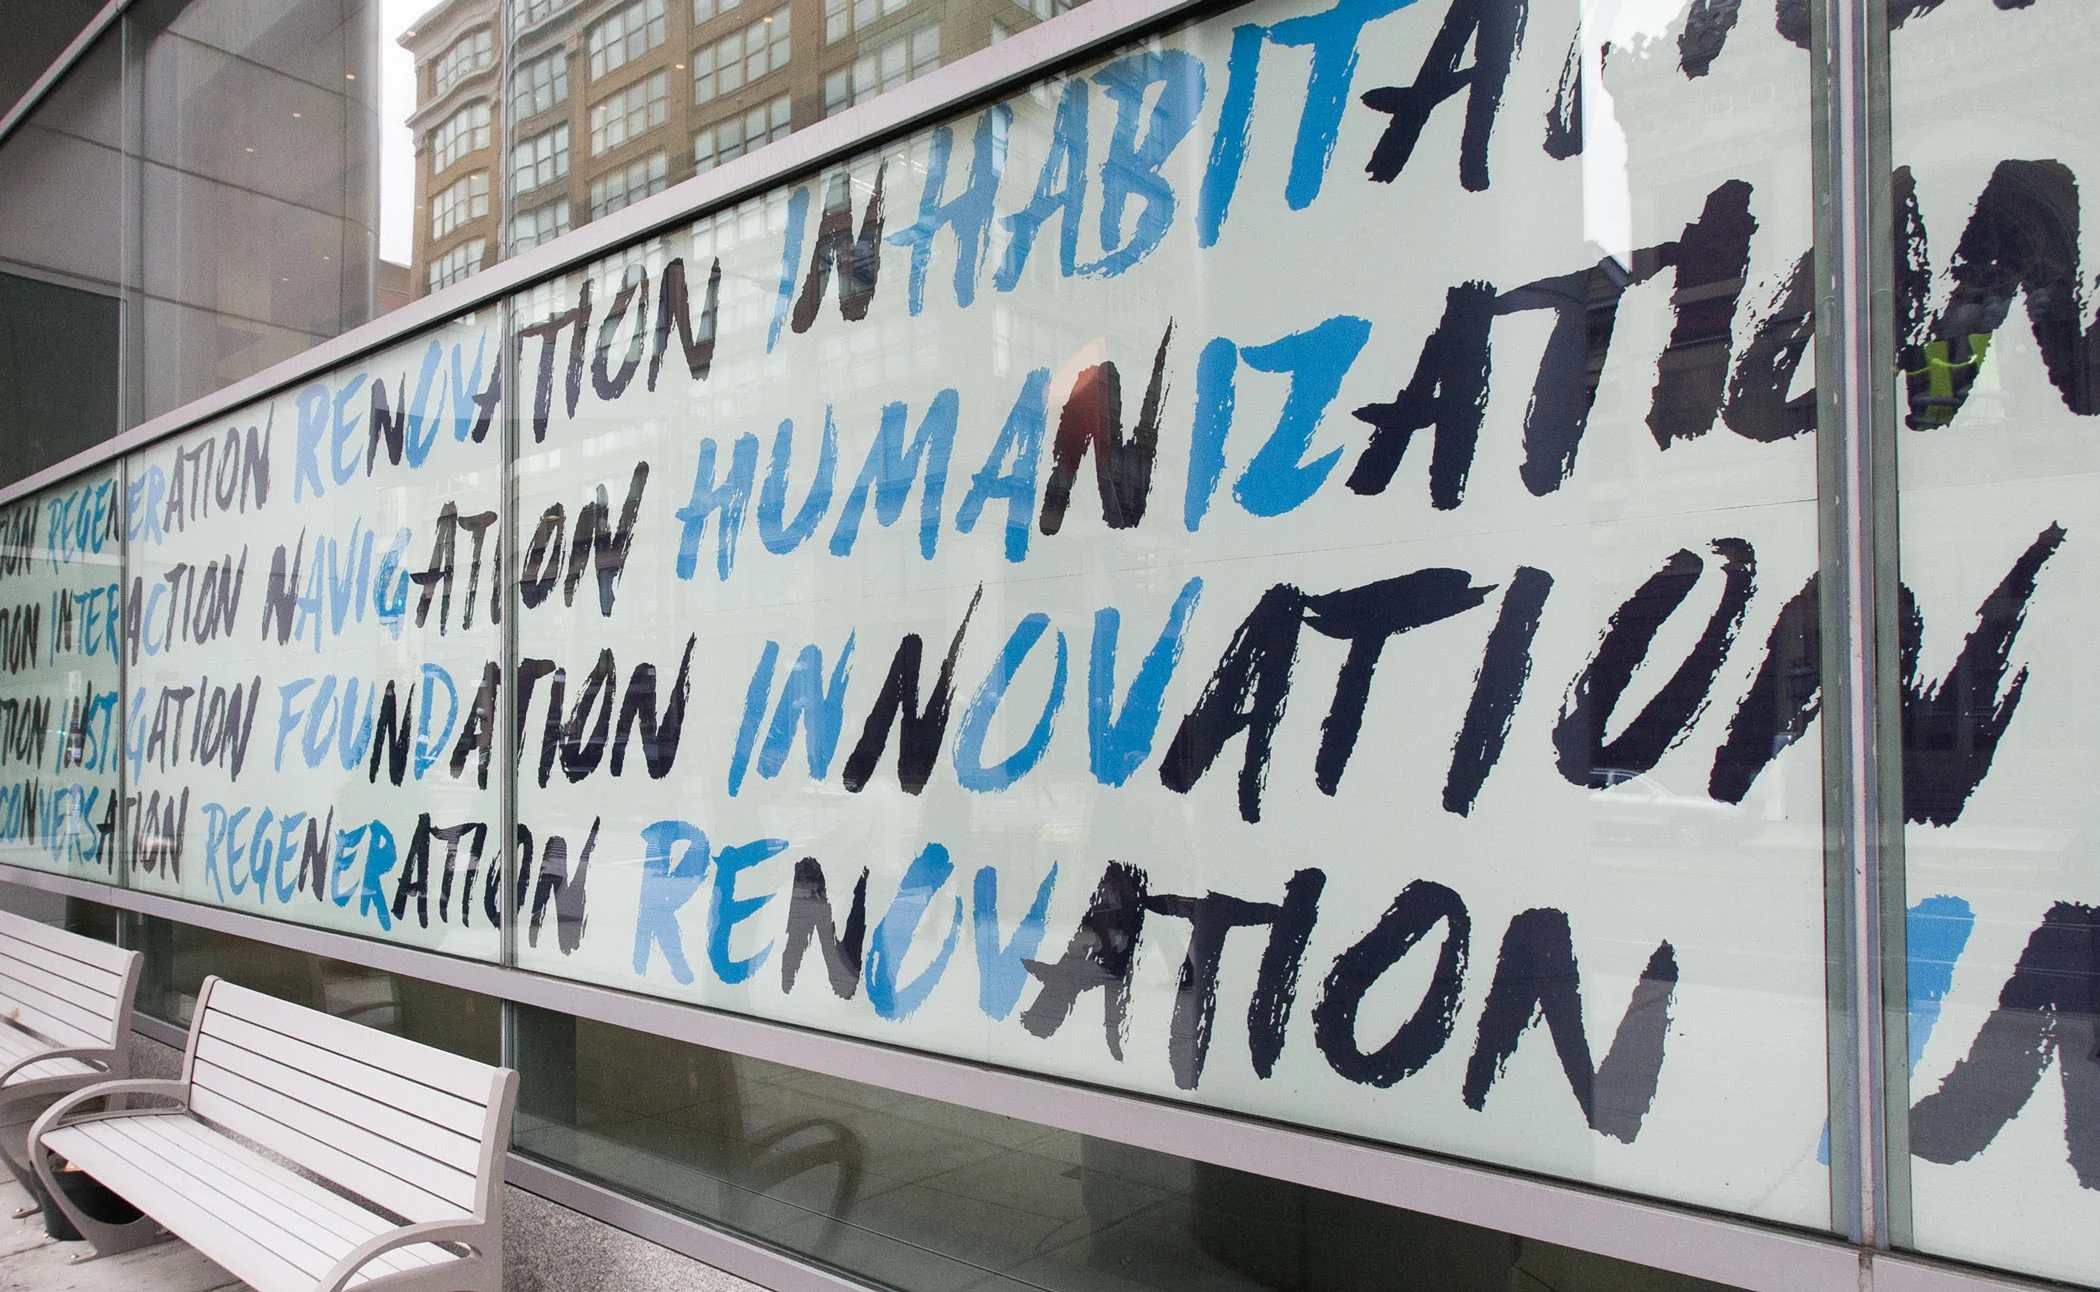 REGENERATION RENOVATION INHABITAT
INTERACTION NAVIGATION HUMANIZATION
INSTIGATION FOUNDATION INNOVATION
CONVERSATION REGENERATION RENOVATION IN